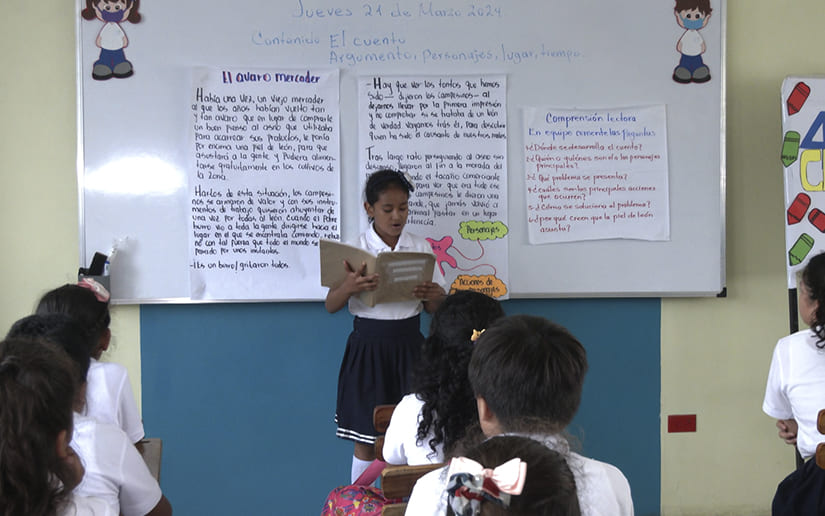 Jueves 21 de Marzo 2024
Contenido El cuento
Argumento, Personajes, lugar, tiempo.
El avaro mercader
Había una vez, un viejo mercader
al que los años habían vuelto tan
y tan avaro que en lugar de comprarle
un buen pienso al asno que utilizaba
para acarrear sus productos, le ponía
por encima una piel de león, para que
asustará a la gente y pudiera alimen-
tarse gratuitamente en los cultivos de
la zona.
Hartos de esta situación, los campesi-
nos se armaron de valor y con sus instru-
mentos de trabajo quisieron ahuyentar de
una vez por todas al león. Cuando el pobre
burro vio a toda la gente dirigirse hasta el
lugar en el que se encontraba comiendo, rebuz
no con tal fuerza que todo el mundo se
parado por unos instantes.
-¡Es un burro! gritaron todos.
-Hay que ver los tontos que hemos
sido dijeron los campesinos- al
dejarnos llevar por la primera impresión
y no comprobar si se trataba de un león
de verdad vayamos trás él, para descubrir
quién ha sido el causante de nuestros males
Tras largo rato persiguiendo al asno sin
al fin a la morada del
el tacaño comerciante
para ver que era todo ese
campesinos le dieron una
que jamás volvió a
animal pastar en su lugar
Personajes
Acciones de
Comprensión lectora
En equipo comente las preguntas
1-¿Dónde se desarrolla el cuento?
2-¿Quién o quiénes son el/o los personajes
principales?
3-¿Qué problema se presenta?
4-¿Cuáles son las principales acciones
que ocurren?
5-¿Cómo se soluciona el problema?
6-¿por qué creen que la piel de león
asusta?